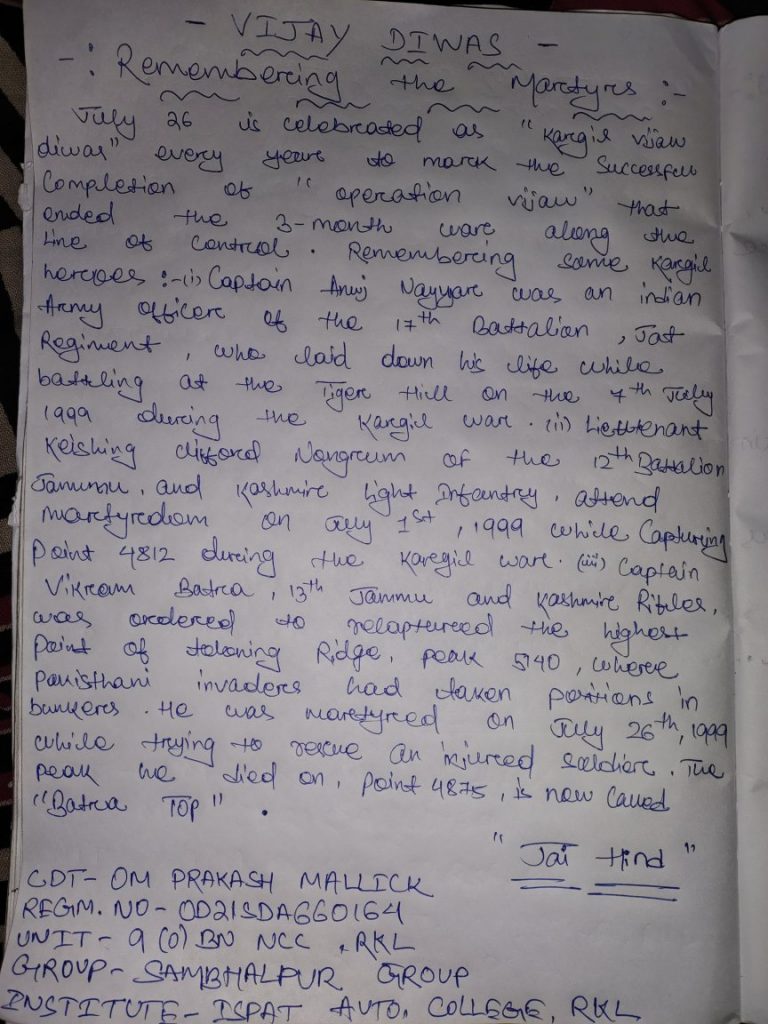 - VIJAY DIWAS -
-: Remembering the Martyrs :-
July 26 is celebrated as "Kargil vijaw
diwas" every years to mark the Successful
Completion of "operation vijaw" that
ended the 3-month ware along the
line of control. Remembering some Kargil
heroes :- (i) Captain Anuj Nayyar was an indian
Army officer of the 17th Battalion, Jat
Regiment, who laid down his life while
battling at the Tiger Hill on the 7th July
1999 during the Kargil war. (ii) Lieutenant
Keishing clifford Nongrum of the 12th Battalion
Jammu, and Kashmire Light Infantry, attend
martyrdom on July 1st, 1999 while Capturing
Point 4812 during the Karegil ware. (iii) Captain
Vikram Batra, 13th Jammu and Kashmire Rifles,
was ordered to recaptured the highest
Point of tololing Ridge, peak 5140, where
Pakisthani invaders had taken positions in
bunkers. He was martyred on July 26th, 1999
while trying to rescue an injured soldier. The
peak he died on, point 4875, is now called
"Batra TOP".
"Jai Hind"
CDT- OM PRAKASH MALLICK
REGM. NO - OD21SDA660164
UNIT - 9 (O) BN NCC, RKL
GROUP - SAMBHALPUR GROUP
INSTITUTE - ISPAT AUTO. COLLEGE, RKL